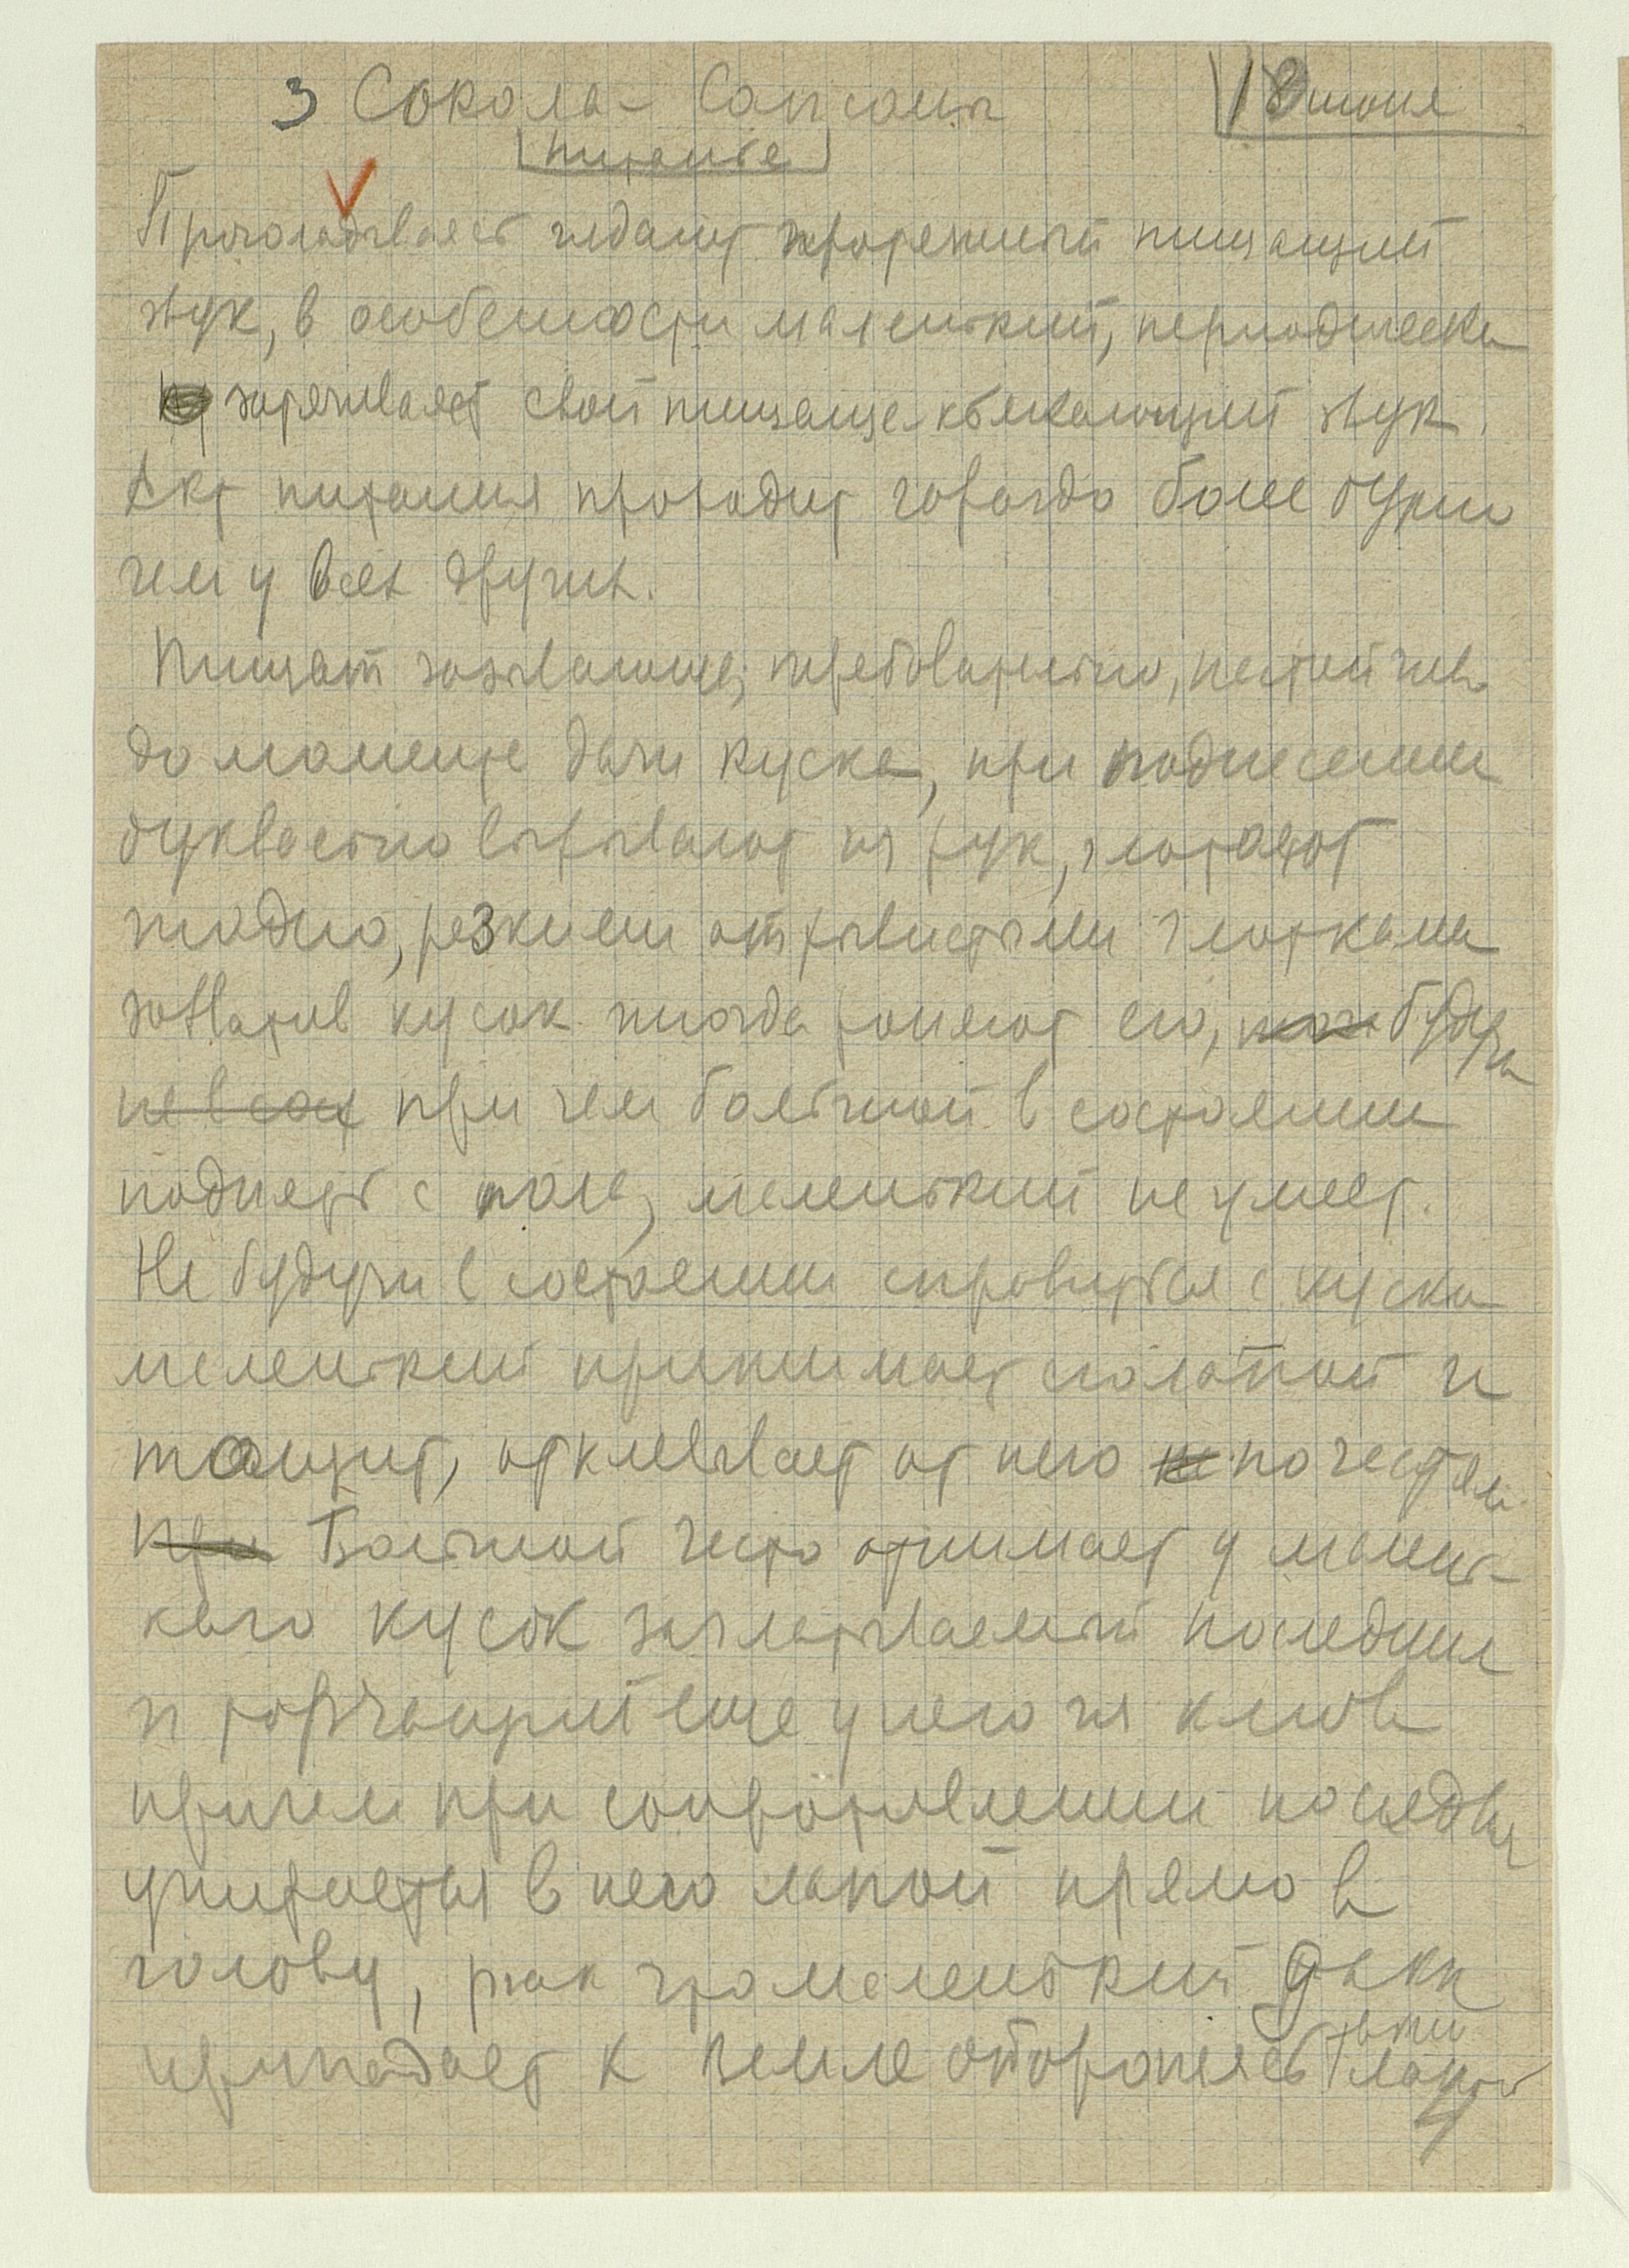 3 Сокола-Сапсаны 18 июня
питание
Проголодываясь издают протяжный пищащий
звук, в особенности маленький, периодически
затягивает свой пищаще-кбякающий звук.
Акт питания проходит гораздо более бурно
чем у всех других.
Пищат зазывающе, требовательно, настойчиво
до момента дачи куска, при поднесении
буквально вырывают из рук, глотают
жадно, резкими отрывистыми глотками
захватив кусок иногда роняют его, будучи
не в сост при чем большой в состоянии
поднять с пола, маленький не умеет.
Не будучи в состоянии справиться с куска
маленький прижимает его лапой и
тащит, отклевывает от него по частям
При Большой часто отнимает у малень-
кого кусок заглатываемый последним
и торчащий еще у него из клюва
причем при сопротивлении последн
упирается в него лапой прямо в
голову, так что маленький аж
припадает к земле обороняясь также
лапой